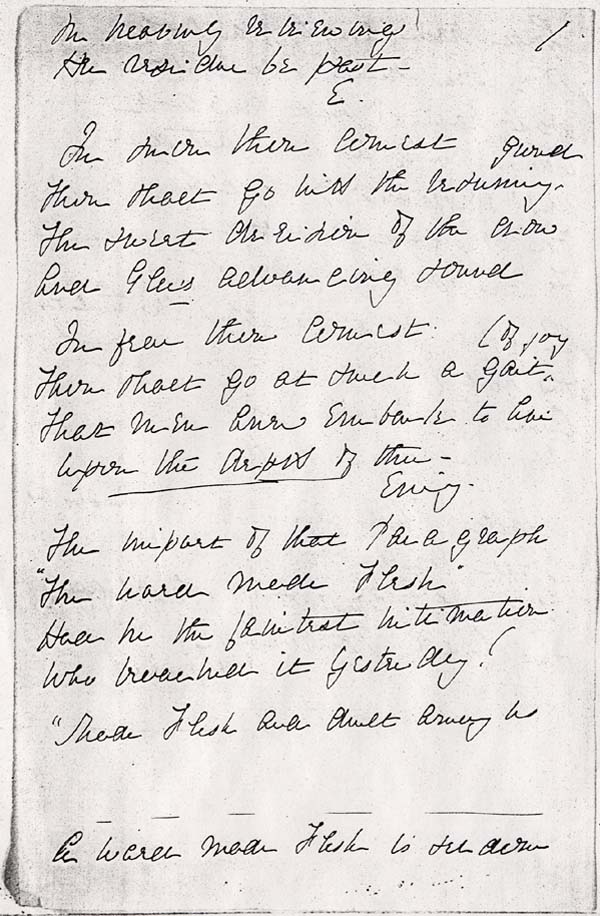 In heavenly reviewing
The residue be past —
E.
In snow thou comest ground
Thou shalt go with the resuming
The sweet derision of the crow
And Glee's advancing sound
In fear thou comest (of joy
Thou shalt go at such a gait
That men anew embark to live
Upon the depth of thee —
Emily.
The import of that Paragraph
"The word made Flesh"
Had he the faintest intimation
Who broached it Yesterday!
"Made Flesh and dwelt among us
A word made Flesh is seldom